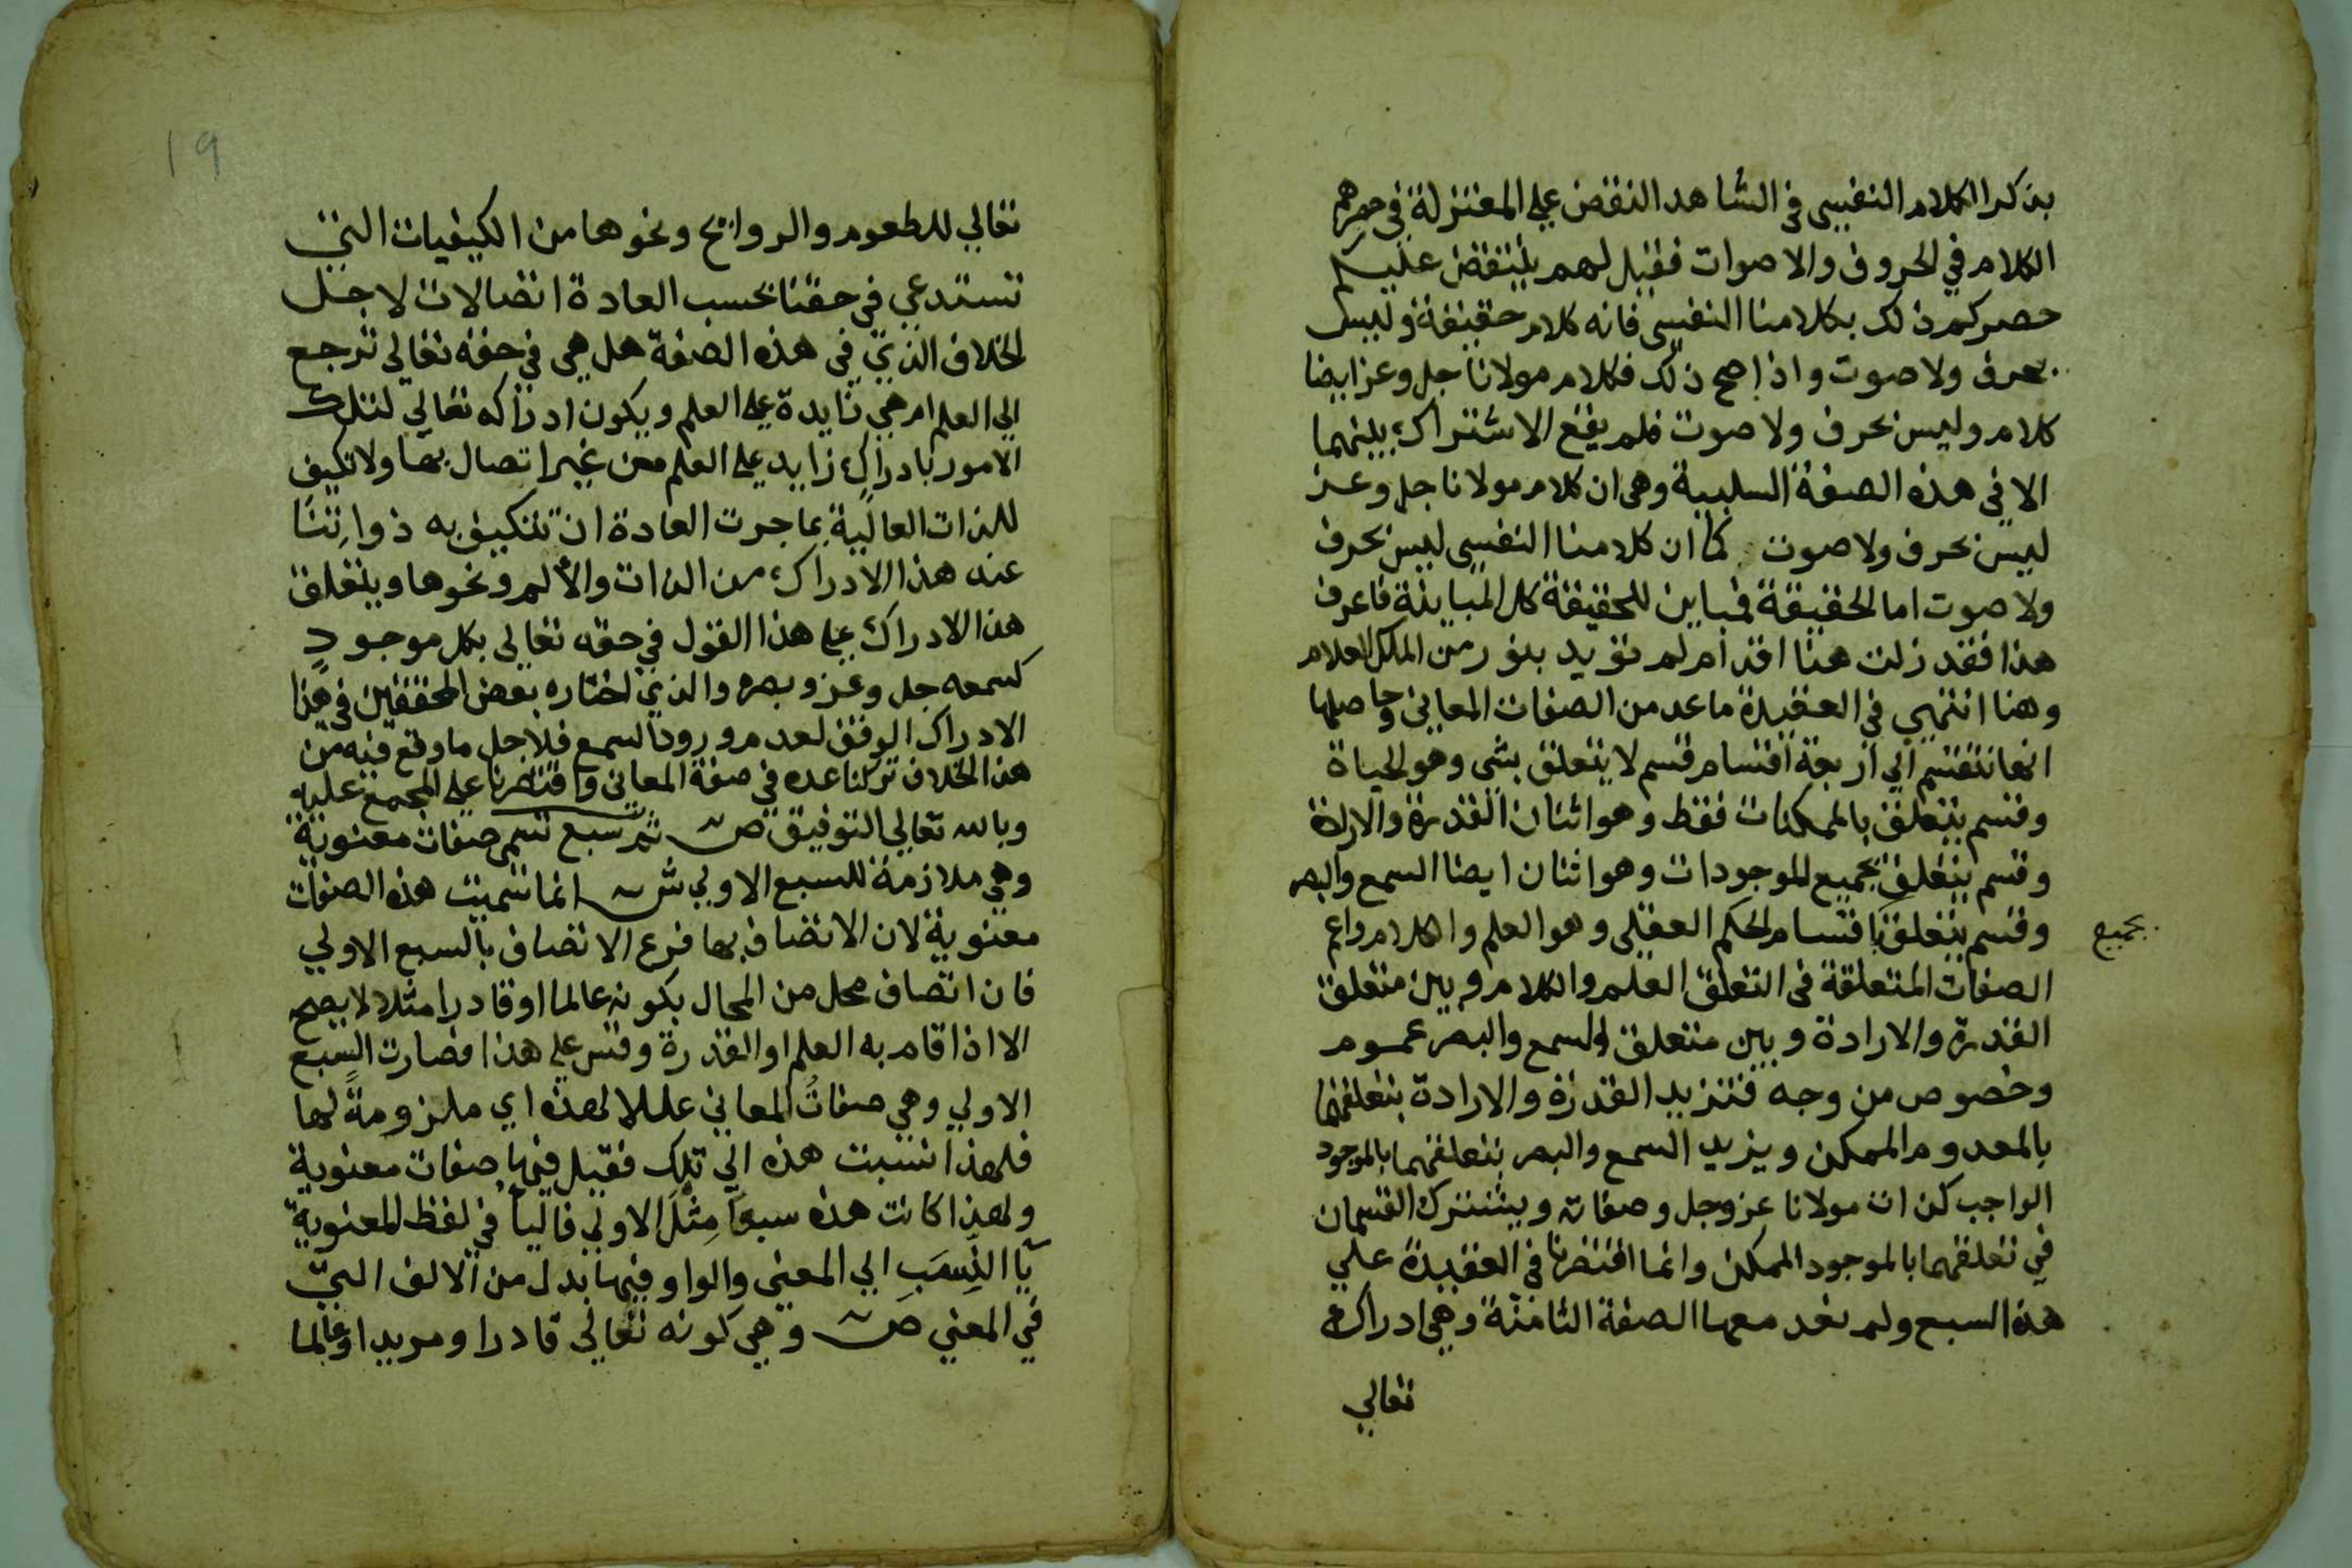 بذكر الكلام النفسي في الشاهد النقض علي المعتزلة في حصرهم
الكلام في الحروف والاصوات فقيل لهم ينتقض عليكم
حصركم ذلك بكلامنا النفسي فانه كلام حقيقة وليس
بحرف ولا صوت واذا صح ذلك فكلام مولانا جل وعز ايضا
كلام وليس بحرف ولا صوت فلم يقع الاشتراك بينهما
الا في هذه الصفة السلبية وهي ان كلام مولانا جل وعز
ليس بحرف ولا صوت كما ان كلامنا النفسي ليس بحرف
ولا صوت اما الحقيقة فمباين للحقيقة كل المباينة فاعرف
هذا فقد زلت هنا اقدام لم تويد بنور من الملك العلام
وهنا انتهي في العقيدة ما عد من الصفات المعاني وحاصلها
انها تنقسم الي اربعة اقسام قسم لا يتعلق بشي وهو الحياة
وقسم يتعلق بالممكنات فقط وهو اثنان القدرة والارادة
وقسم يتعلق بجميع الموجودات وهو اثنان ايضا السمع والبصر
وقسم يتعلق باقسام الحكم العقلي وهو العلم والكلام واعم
بجميع
الصفات المتعلقة في التعلق العلم والكلام وبين متعلق
القدرة والارادة وبين متعلق السمع والبصر عموم
وخصوص من وجه فتزيد القدرة والارادة بتعلقهما
بالمعدوم الممكن ويزيد السمع والبصر بتعلقهما بالموجود
الواجب كذات مولانا عز وجل وصفاته ويشترك القسمان
في تعلقهما بالموجود الممكن وانما اقتصرنا في العقيدة علي
هذه السبع ولم نعد معها الصفة الثامنة وهي ادراك
تعالي
19
تعالي للطعوم والروايح ونحوها من الكيفيات التي
تستدعي في حقنا بحسب العادة اتصالات لاجل
الخلاف الذي في هذه الصفة هل هي في حقه تعالي ترجع
الي العلم ام هي زايدة علي العلم ويكون ادراكه تعالي لتلك
الامور بادراك زايد علي العلم من غير اتصال بها ولا تكيف
للذات العالية بما جرت العادة ان تتكيف به ذواتنا
عند هذا الادراك من الذات والألم ونحوها ويتعلق
هذا الادراك علي هذا القول في حقه تعالي بكل موجودٍ
كسمعه جل وعز وبصره والذي اختاره بعض المحققين في هذا
الادراك الوقف لعدم ورود السمع فلاجل ما وقع فيه من
هذا الخلاف تركنا عده في صفة المعاني واقتصرنا علي المجمع عليه
وبالله تعالي التوفيق ص ثم سبع تسمي صفات معنوية
وهي ملازمة للسبع الاولي ش انما سميت هذه الصفات
معنوية لان الاتصاف بها فرع الاتصاف بالسبع الاولي
فان اتصاف محل من المحال بكونه عالما او قادرا مثلا لا يصح
الا اذا قام به العلم او القدرة وقس علي هذا فصارت السبع
الاولي وهي صفاتُ المعاني عللا لهذه اي ملزومةً لها
فلهذا نسبت هذه الي تلك فقيل فيها صفات معنوية
ولهذا كانت هذه سبعاً مِثْلَ الاولي فاليا في لفظ المعنوية
يا النَّسَبِ الي المعني والواو فيها بدل من الالف التي
في المعني ص وهي كونه تعالي قادرا ومريدا وعالما